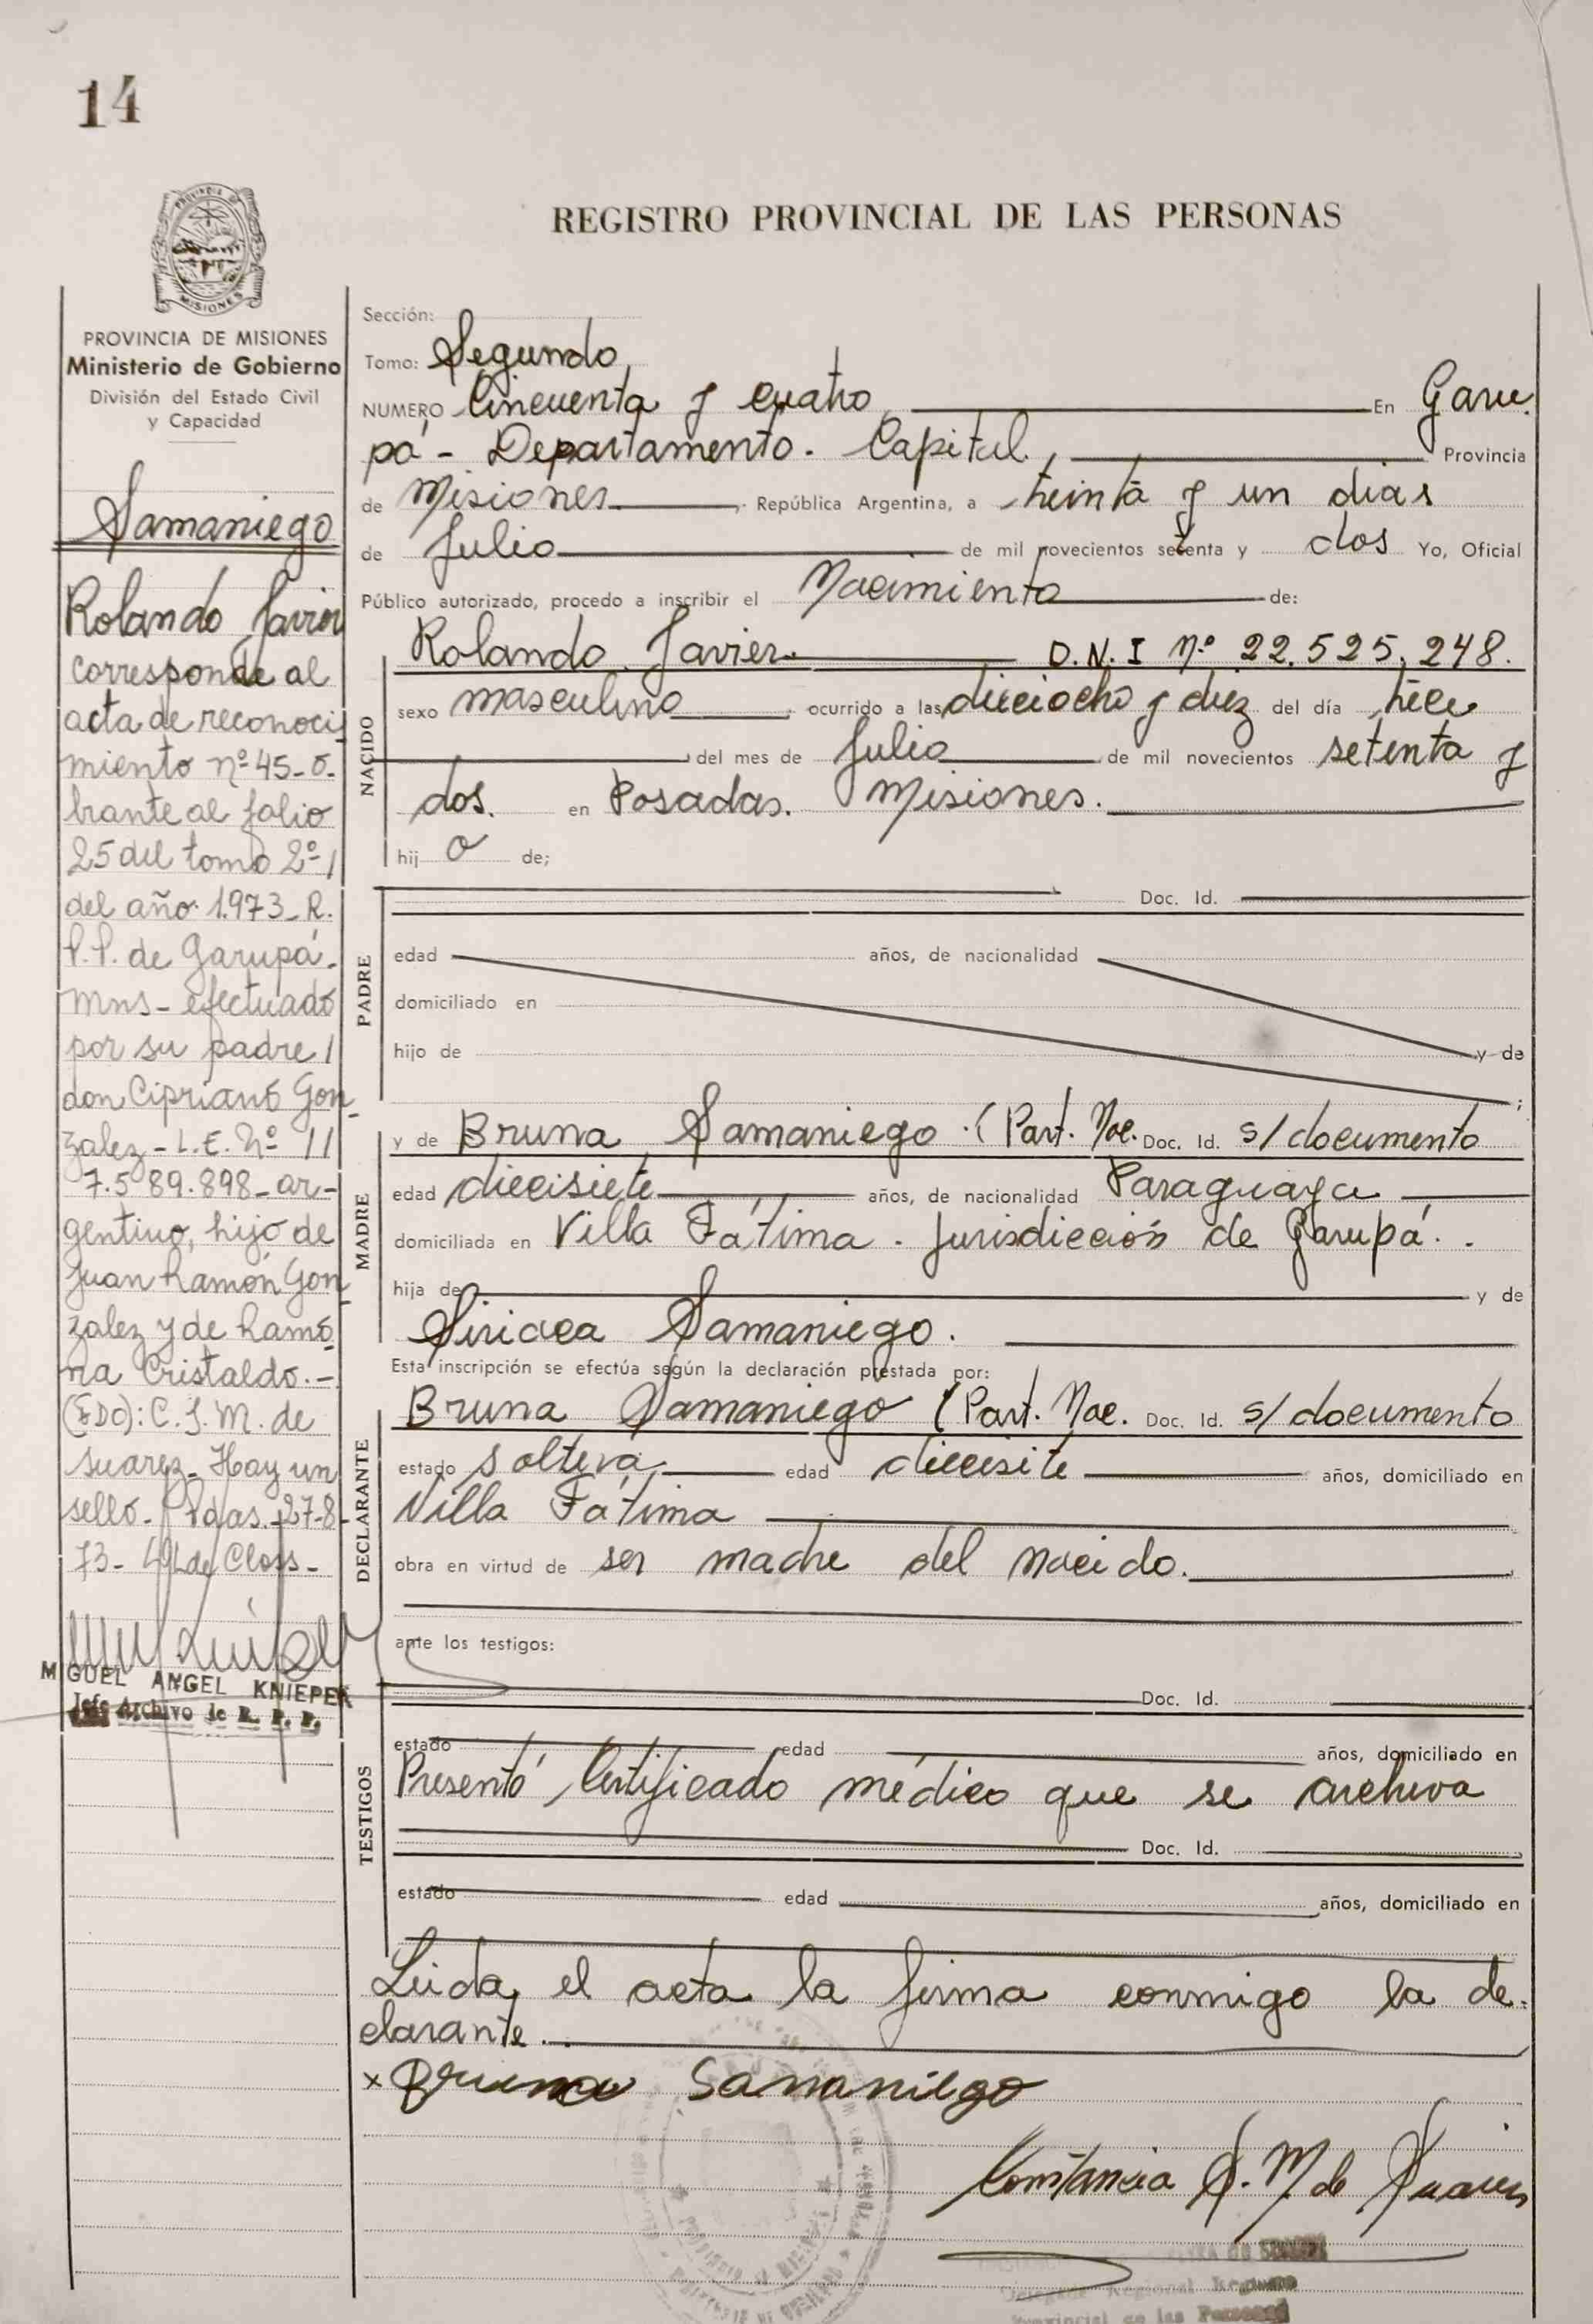 14
REGISTRO PROVINCIAL DE LAS PERSONAS
PROVINCIA DE
MISIONES
PROVINCIA DE MISIONES
Ministerio de Gobierno
División del Estado Civil
y Capacidad
Samaniego
Rolando Javier
corresponde al
acta de reconoci
miento nº 45 - o-
brante al folio
25 del tomo 2º /
del año 1.973 - R.
P.P. de Garupá -
Mns - efectuado
por su padre /
don Cipriano Gon-
zalez - L.E. Nº //
7.589.898 - ar-
gentino, hijo de
Juan Ramón Gon-
zalez y de Ramo-
na Cristaldo. -
(FDO): C. S. M. de
Suarez - Hay un
sello. - Pdas. - 27-8-
73 - de Closs -
MIGUEL ANGEL KNIEPER
Jefe Archivo de R. P. P.
Sección:
Tomo: Segundo
NUMERO Cincuenta y cuatro En Garu-
pá - Departamento. Capital, Provincia
de Misiones, República Argentina, a treinta y un dias
de Julio de mil novecientos setenta y dos Yo, Oficial
Público autorizado, procedo a inscribir el Nacimiento de:
NACIDO
Rolando Javier. D.N.I Nº 22.525.248.
sexo masculino, ocurrido a las dieciocho y diez del día trece
del mes de Julio de mil novecientos setenta y
dos. en Posadas. Misiones.
hij o de;
PADRE
Doc. Id.
edad años, de nacionalidad
domiciliado en
hijo de y de
;
MADRE
y de Bruna Samaniego (Part. Nac. Doc. Id. s/documento
edad diecisiete años, de nacionalidad Paraguaya
domiciliada en Villa Fátima. Jurisdicción de Garupá.
hija de y de
Siriaca Samaniego.
Esta inscripción se efectúa según la declaración prestada por:
DECLARANTE
Bruna Samaniego (Part. Nac. Doc. Id. s/documento
estado soltera, edad diecisite años, domiciliado en
Villa Fátima
obra en virtud de ser madre del nacido.
ante los testigos:
TESTIGOS
Doc. Id.
estado edad años, domiciliado en
Presentó Certificado médico que se archiva
Doc. Id.
estado edad años, domiciliado en
Leida el acta la firma conmigo la de-
clarante.
x Bruna Samaniego
Constancia S. M. de Suarez
Delegada Regional Registro
Provincial de las Personas